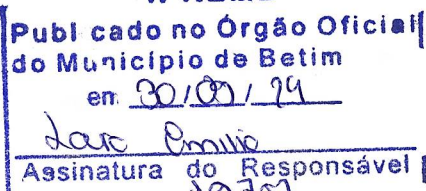 Publicado no Órgão Oficial
do Município de Betim
em 30/09/24
Emilia
Assinatura do Responsável